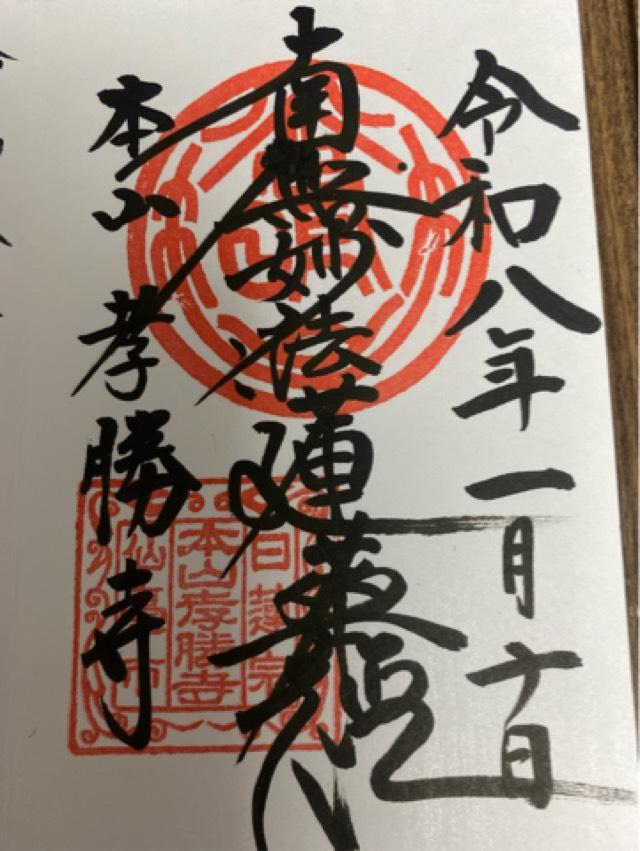 令和八年一月十日
南無妙法蓮華経
本山 孝勝寺
日蓮宗
本山孝勝寺
仙臺市